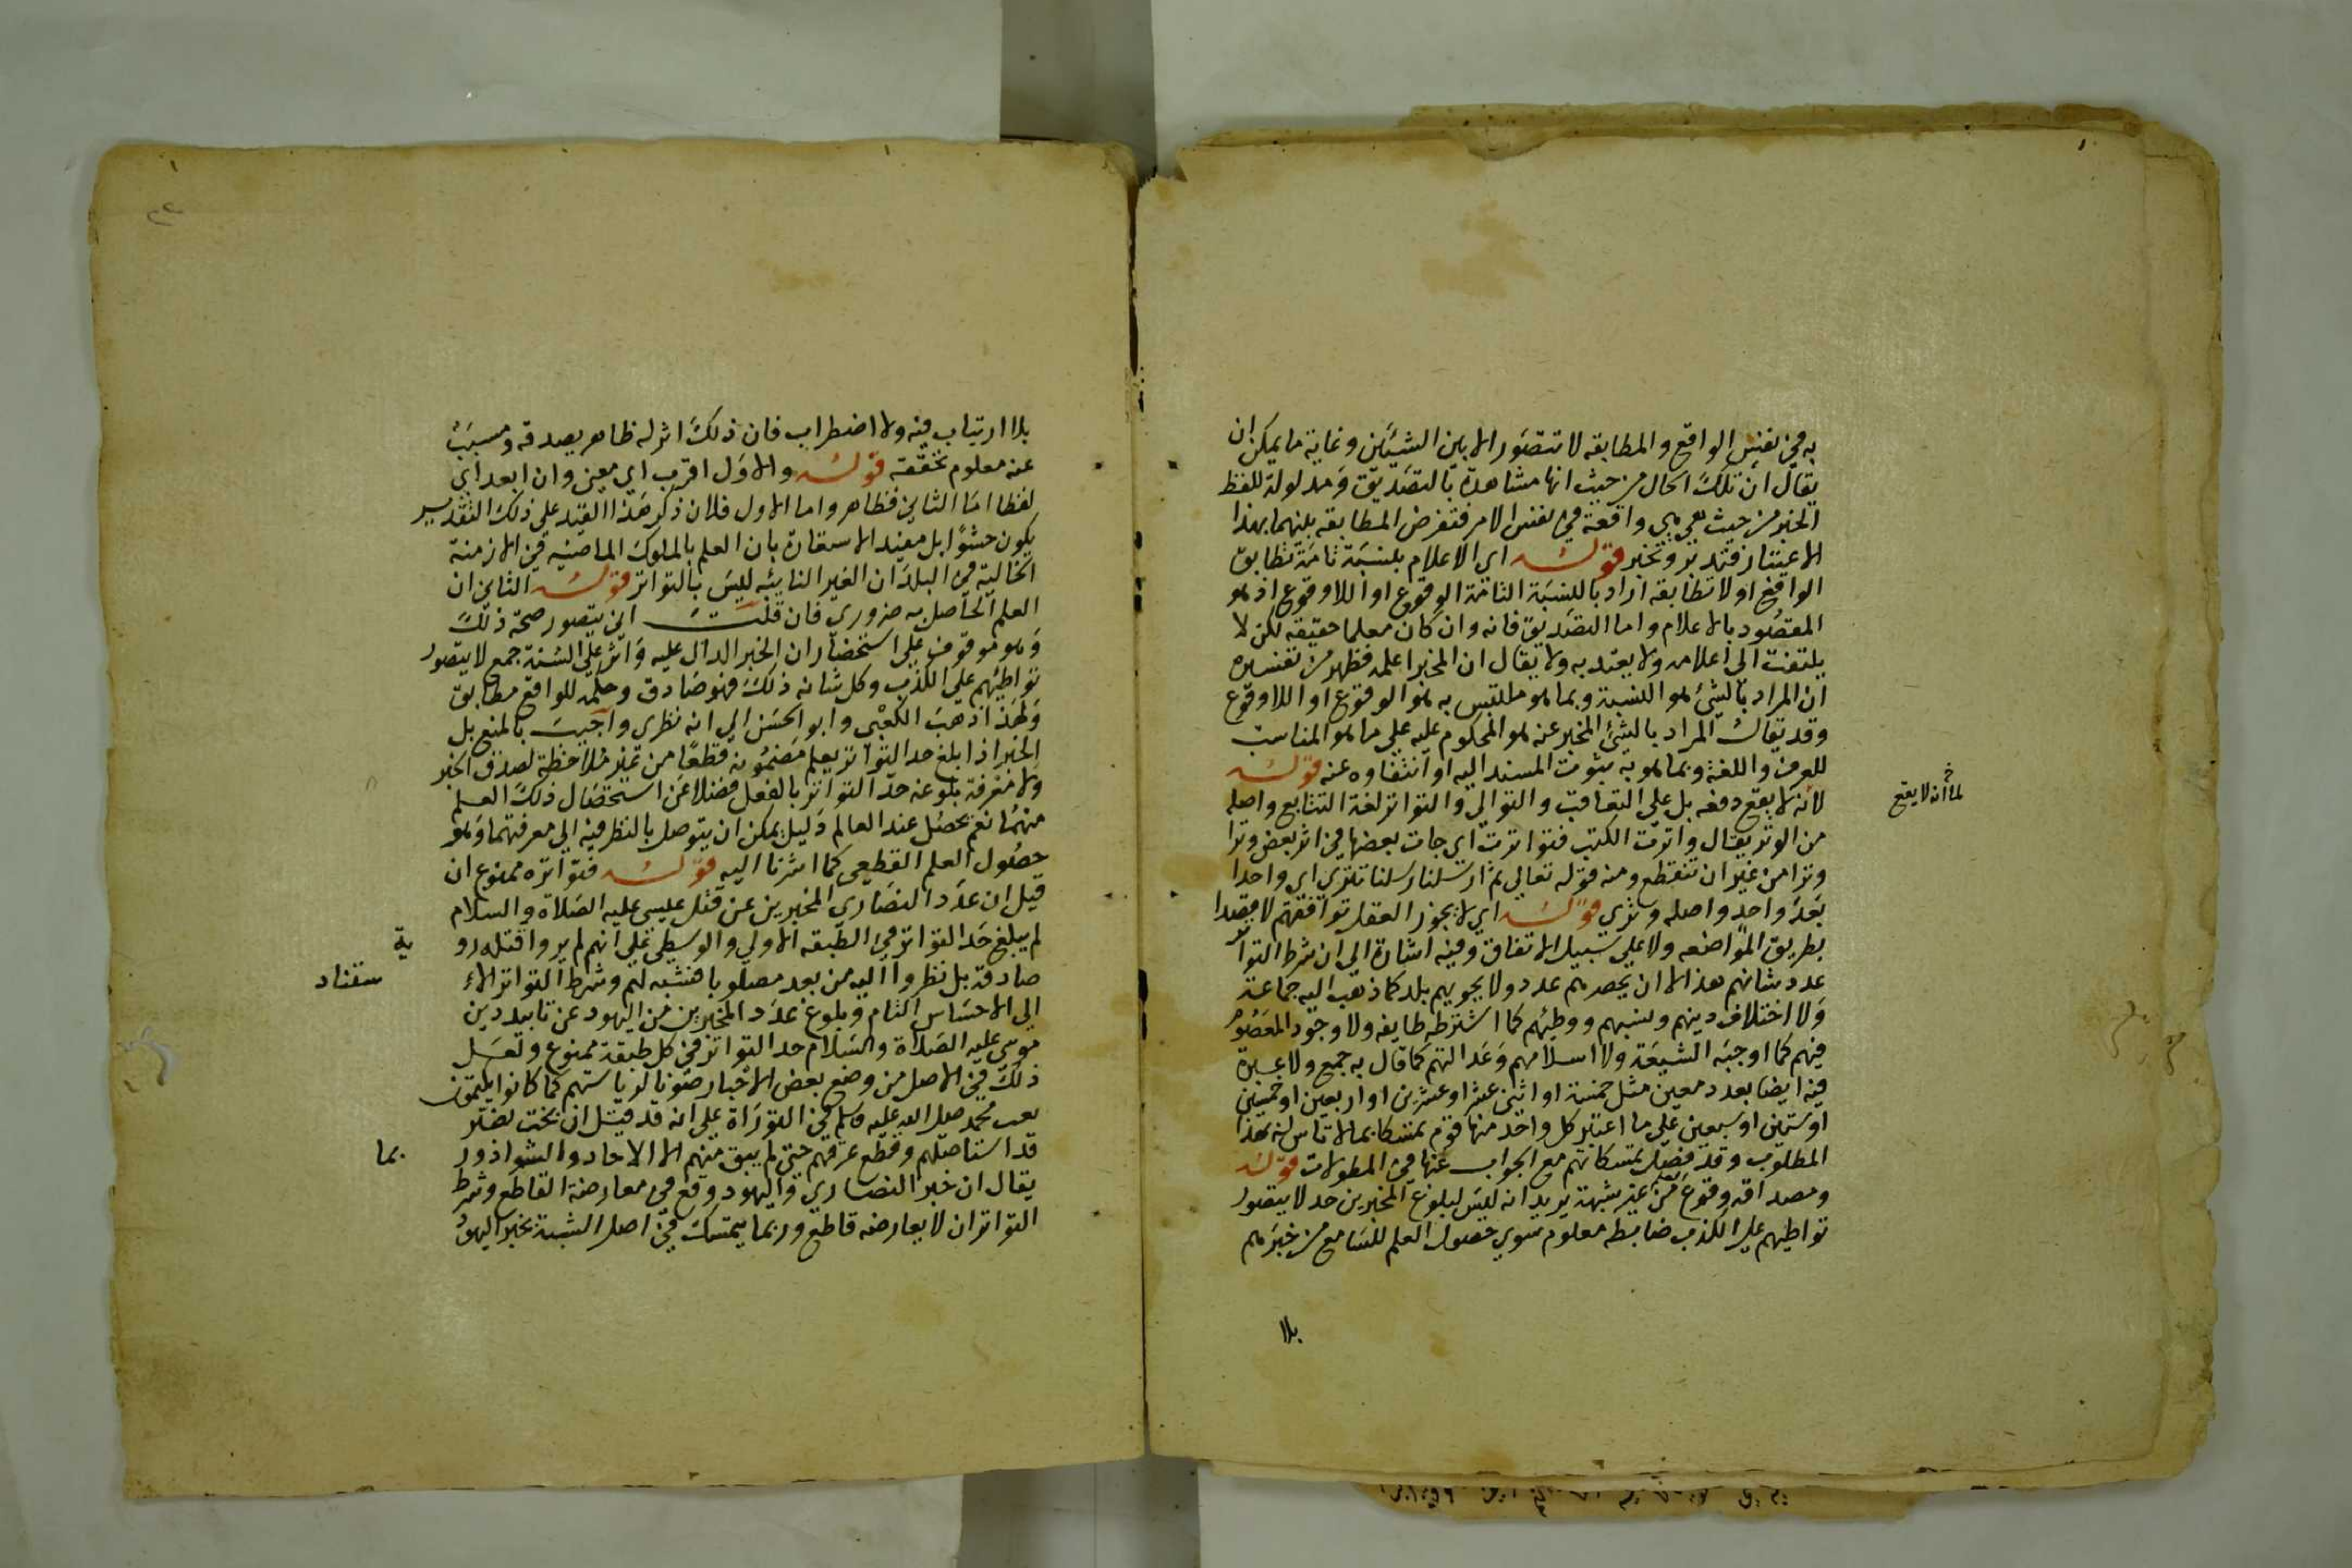 به في نفس الواقع والمطابقه لا تتصور الا بين الشيئين وغاية ما يمكن ان
يقال ان تلك الحال من حيث انها مشاهدة بالتصديق ومدلولة للفظ
الخبر من حيث هي هي واقعة في نفس الامر فتفرض المطابقه بينهما بهذا
الاعتبار فتدبر وتخبر قوله اي الاعلام بنسبة تامة تطابق
الواقع او لا تطابقه اراد بالنسبة التامة الوقوع او اللاوقوع اذ هو
المقصود بالاعلام واما التصديق فانه وان كان معلما حقيقه لكن لا
يلتفت الي اعلامه ولا يعتد به ولا يقال ان المخبر اعلمه فظهر من تفسيره
ان المراد بالشئ هو النسبة وبما هو ملتبس به هو الوقوع او اللاوقوع
وقد يقال المراد بالشئ المخبر عنه هو المحكوم عليه علي ما هو المناسب
للعرف واللغة وبما هو به ثبوت المسند اليه او انتفاوه عنه قوله
لانه لا يقع دفعه بل علي التعاقب والتوالي والتواتر لغة التتابع واصله
لما انه لا يقع
من الوتر يقال واترت الكتب فتواترت اي جات بعضها في اثر بعض وترا
وترا من غير ان تنقطع ومنه قوله تعالي ثم ارسلنا رسلنا تتري اي واحدا
بعد واحد واصله وتري قوله اي لا يجوز العقل توافقهم لا قصدا
بطريق المواضعه ولا علي سبيل الاتفاق وفيه اشارة الي ان شرط التواتر
عدد شانهم هذا لا ان يحصرهم عدد ولا يحويهم بلد كما ذهب اليه جماعة
ولا اختلاف دينهم ونسبهم ووطنهم كما اشترطه طايفه ولا وجود المعصوم
فيهم كما اوجبه الشيعة ولا اسلامهم وعدالتهم كما قال به جمع ولا عبرة
فيه ايضا بعدد معين مثل خمسة او اثني عشر او عشرين او اربعين او خمسين
او ستين او سبعين علي ما اعتبر كل واحد منها قوم تمسكا بما لا تاس له بهذا
المطلوب وقد فصل تمسكاتهم مع الجواب عنها في المطولات قوله
ومصداقه وقوع من غير شبهة يريد انه ليس لبلوغ المخبرين حد لا يتصور
تواطيهم علي الكذب ضابطه معلوم سوي حصول العلم للسامع من خبرهم
بلا
بلا ارتياب فيه ولا اضطراب فان ذلك اثر له ظاهر يصدقه ومسبب
عنه معلوم تحققه قوله والاول اقرب اي معني وان ابعد اي
لفظا اما الثاني فظاهر واما الاول فلان ذكر هذا القيد علي ذلك التقدير
يكون حشوا بل مفيد الاستفادة بان العلم بالملوك الماضيه في الازمنة
الخالية في البلدان الغير النايئه ليس بالتواتر قوله الثاني ان
العلم الحاصل به ضروري فان قلت اني يتصور صحة ذلك
وهو موقوف علي استحضار ان الخبر الدال عليه واثر علي السنة جمع لا يتصور
تواطيهم علي الكذب وكل شانه ذلك فهو صادق وحكمه للواقع مطابق
ولهذا ذهب الكعبي وابو الحسن الي انه نظري واجيب بالمنع بل
الخبر اذا بلغ حد التواتر يعلم مضمونه قطعا من غير ملاحظة لصدق الخبر
ولا معرفة بلوغه حد التواتر بالفعل فضلا عن استحصال ذلك العلم
منهما نعم يحصل عند العالم دليل يمكن ان يتوصل بالنظر فيه الي معرفتهما وهو
حصول العلم القطعي كما اشرنا اليه قوله فتواتره ممنوع ان
قيل ان عدد النصاري المخبرين عن قتل عيسي عليه الصلاة والسلام
لم يبلغ حد التواتر في الطبقه الاولي والوسطي علي انهم لم يروا قتله رو
ية
صادقة بل نظروا اليه من بعد مصلوبا فشبه لهم وشرط التواتر الا
ستناد
الي الاحساس التام وبلوغ عدد المخبرين من اليهود عن تابيد دين
موسي عليه الصلاة والسلام حد التواتر في كل طبقة ممنوع ولعل
ذلك في الاصل من وضع بعض الاحبار صونا لرياستهم كما كانوا يكتمون
نعت محمد صلي الله عليه وسلم في التوراة علي انه قد قيل ان بخت نصر
قد استاصلهم وقطع عرقهم حتي لم يبق منهم الا الاحاد والشواذ ور
بما
يقال ان خبر النصاري واليهود وقع في معارضة القاطع وشرط
التواتر ان لا يعارضه قاطع وربما يتمسك في اصل الشبة بخبر اليهود